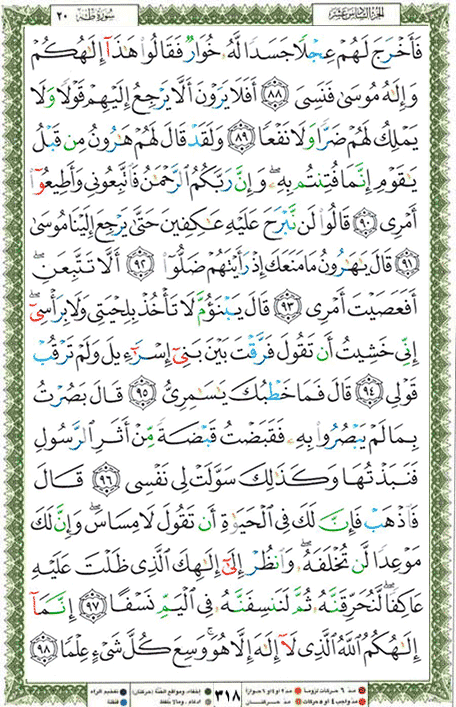 الجزء السادس عشر
سورة طه ٢٠
فَأَخْرَجَ لَهُمْ عِجْلًا جَسَدًا لَّهُۥ خُوَارٌ فَقَالُوا۟ هَٰذَآ إِلَٰهُكُمْ
وَإِلَٰهُ مُوسَىٰ فَنَسِىَ ٨٨ أَفَلَا يَرَوْنَ أَلَّا يَرْجِعُ إِلَيْهِمْ قَوْلًا وَلَا
يَمْلِكُ لَهُمْ ضَرًّا وَلَا نَفْعًا ٨٩ وَلَقَدْ قَالَ لَهُمْ هَٰرُونُ مِن قَبْلُ
يَٰقَوْمِ إِنَّمَا فُتِنتُم بِهِۦ ۖ وَإِنَّ رَبَّكُمُ ٱلرَّحْمَٰنُ فَٱتَّبِعُونِى وَأَطِيعُوٓا۟
أَمْرِى ٩٠ قَالُوا۟ لَن نَّبْرَحَ عَلَيْهِ عَٰكِفِينَ حَتَّىٰ يَرْجِعَ إِلَيْنَا مُوسَىٰ
٩١ قَالَ يَٰهَٰرُونُ مَا مَنَعَكَ إِذْ رَأَيْتَهُمْ ضَلُّوٓا۟ ٩٢ أَلَّا تَتَّبِعَنِ ۖ
أَفَعَصَيْتَ أَمْرِى ٩٣ قَالَ يَبْنَؤُمَّ لَا تَأْخُذْ بِلِحْيَتِى وَلَا بِرَأْسِىٓ ۖ
إِنِّى خَشِيتُ أَن تَقُولَ فَرَّقْتَ بَيْنَ بَنِىٓ إِسْرَٰٓءِيلَ وَلَمْ تَرْقُبْ
قَوْلِى ٩٤ قَالَ فَمَا خَطْبُكَ يَٰسَٰمِرِىُّ ٩٥ قَالَ بَصُرْتُ
بِمَا لَمْ يَبْصُرُوا۟ بِهِۦ فَقَبَضْتُ قَبْضَةً مِّنْ أَثَرِ ٱلرَّسُولِ
فَنَبَذْتُهَا وَكَذَٰلِكَ سَوَّلَتْ لِى نَفْسِى ٩٦ قَالَ
فَٱذْهَبْ فَإِنَّ لَكَ فِى ٱلْحَيَوٰةِ أَن تَقُولَ لَا مِسَاسَ ۖ وَإِنَّ لَكَ
مَوْعِدًا لَّن تُخْلَفَهُۥ ۖ وَٱنظُرْ إِلَىٰٓ إِلَٰهِكَ ٱلَّذِى ظَلْتَ عَلَيْهِ
عَاكِفًا ۖ لَّنُحَرِّقَنَّهُۥ ثُمَّ لَنَنسِفَنَّهُۥ فِى ٱلْيَمِّ نَسْفًا ٩٧ إِنَّمَآ
إِلَٰهُكُمُ ٱللَّهُ ٱلَّذِى لَآ إِلَٰهَ إِلَّا هُوَ ۚ وَسِعَ كُلَّ شَىْءٍ عِلْمًا ٩٨
مد ٦ حركات لزوماً مد ٢ أو ٤ أو ٦ جوازاً
مد واجب ٤ أو ٥ حركات مد حركتان
٣١٨
إخفاء، ومواقع الغنة (حركتان) تفخيم الراء
إدغام، وما لا يلفظ قلقلة